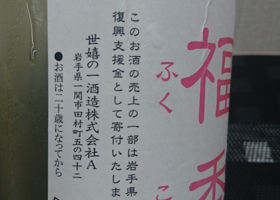 福
ふく
こ
このお酒の売上の一部は岩手県
復興支援金として寄付いたしま
世嬉の一酒造株式会社A
岩手県一関市田村町五の四十二
●お酒は二十歳になってから